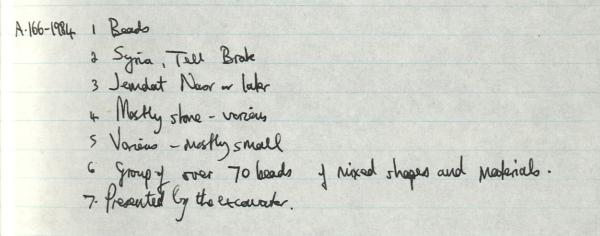 A·166-1984 1 Beads
2 Syria, Tell Brak
3 Jemdat Nasr or later
4 Mostly stone - various
5 Various - mostly small
6 Group of over 70 beads of mixed shapes and materials.
7. Presented by the excavator.